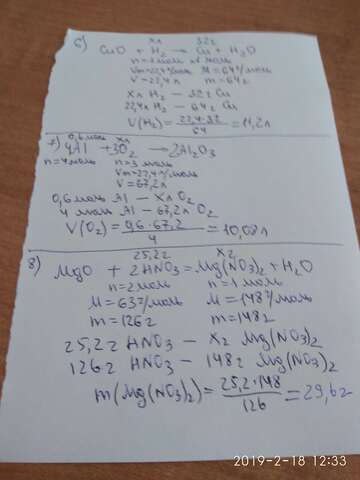 хл 32г
6) CuO + H₂ → Cu + H₂O
n=1моль n=1моль
Vm=22,4л/моль M=64г/моль
V=22,4л m=64г
Хл H₂ — 32г Cu
22,4л H₂ — 64г Cu
V(H₂) = 22,4·32 / 64 = 11,2л
0,6моль Хл
7) 4Al + 3O₂ → 2Al₂O₃
n=4моль n=3моль
Vm=22,4л/моль
V=67,2л
0,6моль Al — Хл O₂
4 моль Al — 67,2л O₂
V(O₂) = 0,6·67,2 / 4 = 10,08л
25,2г Хг
8) MgO + 2HNO₃ = Mg(NO₃)₂ + H₂O
n=2моль n=1моль
M=63г/моль M=148г/моль
m=126г m=148г
25,2г HNO₃ — Хг Mg(NO₃)₂
126г HNO₃ — 148г Mg(NO₃)₂
m(Mg(NO₃)₂) = 25,2·148 / 126 = 29,6г
2019-2-18 12:33